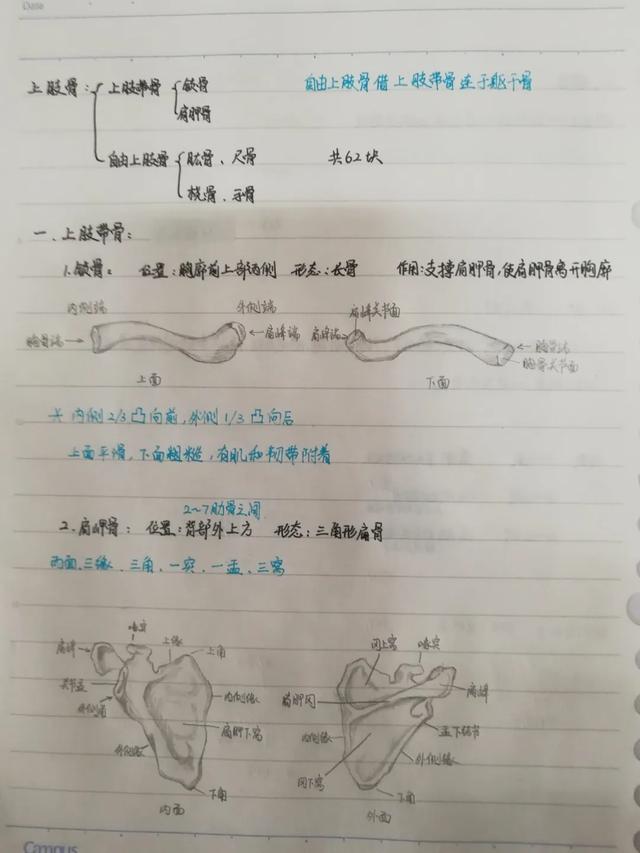 Date
上肢骨：上肢带骨 锁骨 自由上肢骨借上肢带骨连于躯干骨
肩胛骨
自由上肢骨 肱骨、尺骨 共62块
桡骨、手骨
一、上肢带骨：
1.锁骨： 位置：胸廓前上部两侧 形态：长骨 作用：支撑肩胛骨，使肩胛骨离开胸廓
内侧端 外侧端 肩峰关节面
胸骨端 肩峰端 肩峰端 胸骨端
胸骨关节面
上面 下面
内侧2/3凸向前，外侧1/3凸向后
上面平滑，下面粗糙，有肌和韧带附着
2～7肋骨之间
2.肩岬骨： 位置：背部外上方 形态：三角形扁骨
两面、三缘、三角、一突、一盂、三窝
喙突
肩峰 上缘 上角 冈上窝 喙突
关节盂 肩峰
外侧角 内侧缘 肩胛冈
肩胛下窝 内侧缘 盂下结节
外侧缘 外侧缘
冈下窝
下角 下角
内面 外面
Campus